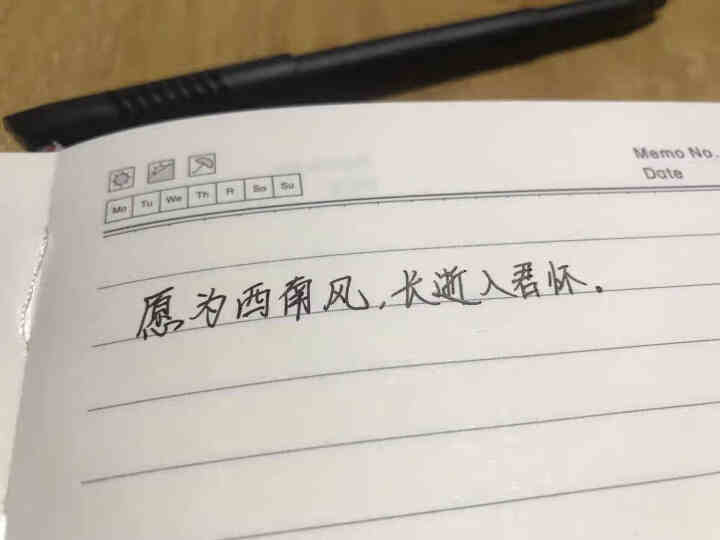 Memo No.
Date
Mo Tu We Th R Sa Su
愿为西南风,长逝入君怀.